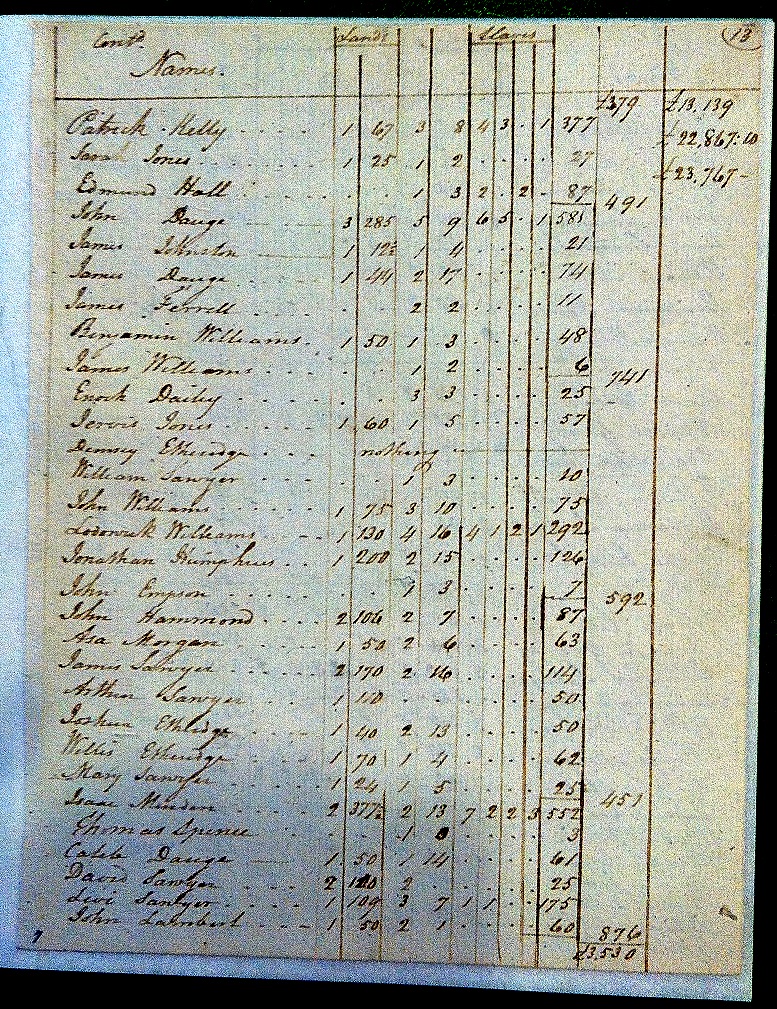 Contd. Lands Slaves 13
Names.
£379 £13,139
Patrick Kelly 1 67 3 8 4 3 . 1 377
£22,867:10
Sarah Jones 1 25 1 2 27
£23,767-
Edmund Hall 1 3 2 . 2 . 87
491
John Dauge 3 285 5 9 6 5 . 1 581
James Johnston 1 12½ 1 4 21
James Dauge 1 44 2 17 74
James Ferrell 2 2 11
Benjamin Williams 1 50 1 3 48
James Williams 1 2 6
741
Enoch Dailey 3 3 25
Jervis Jones 1 60 1 5 57
Demsey Etheridge nothing
William Sawyer 1 3 10
John Williams 1 75 3 10 75
Lodowick Williams 1 130 4 16 4 1 2 1 292
Jonathan Humphries 1 200 2 15 126
John Empson 1 3 7
592
John Hammond 2 106 2 7 87
Asa Morgan 1 50 2 6 63
James Sawyer 2 170 2 16 114
Arthur Sawyer 1 50
Joshua Etheridge 1 40 2 13 50
Willis Etheridge 1 70 1 4 62
Mary Sawyer 1 24 1 5 25
451
Isaac 2 377½ 2 13 7 2 2 3 552
Thomas Spence 1 3
Caleb Dauge 1 50 1 14 61
David Sawyer 2 120 2 25
Levi Sawyer 1 109 3 7 1 1 175
John Lambert 1 50 2 1 60
876
£3,530
7